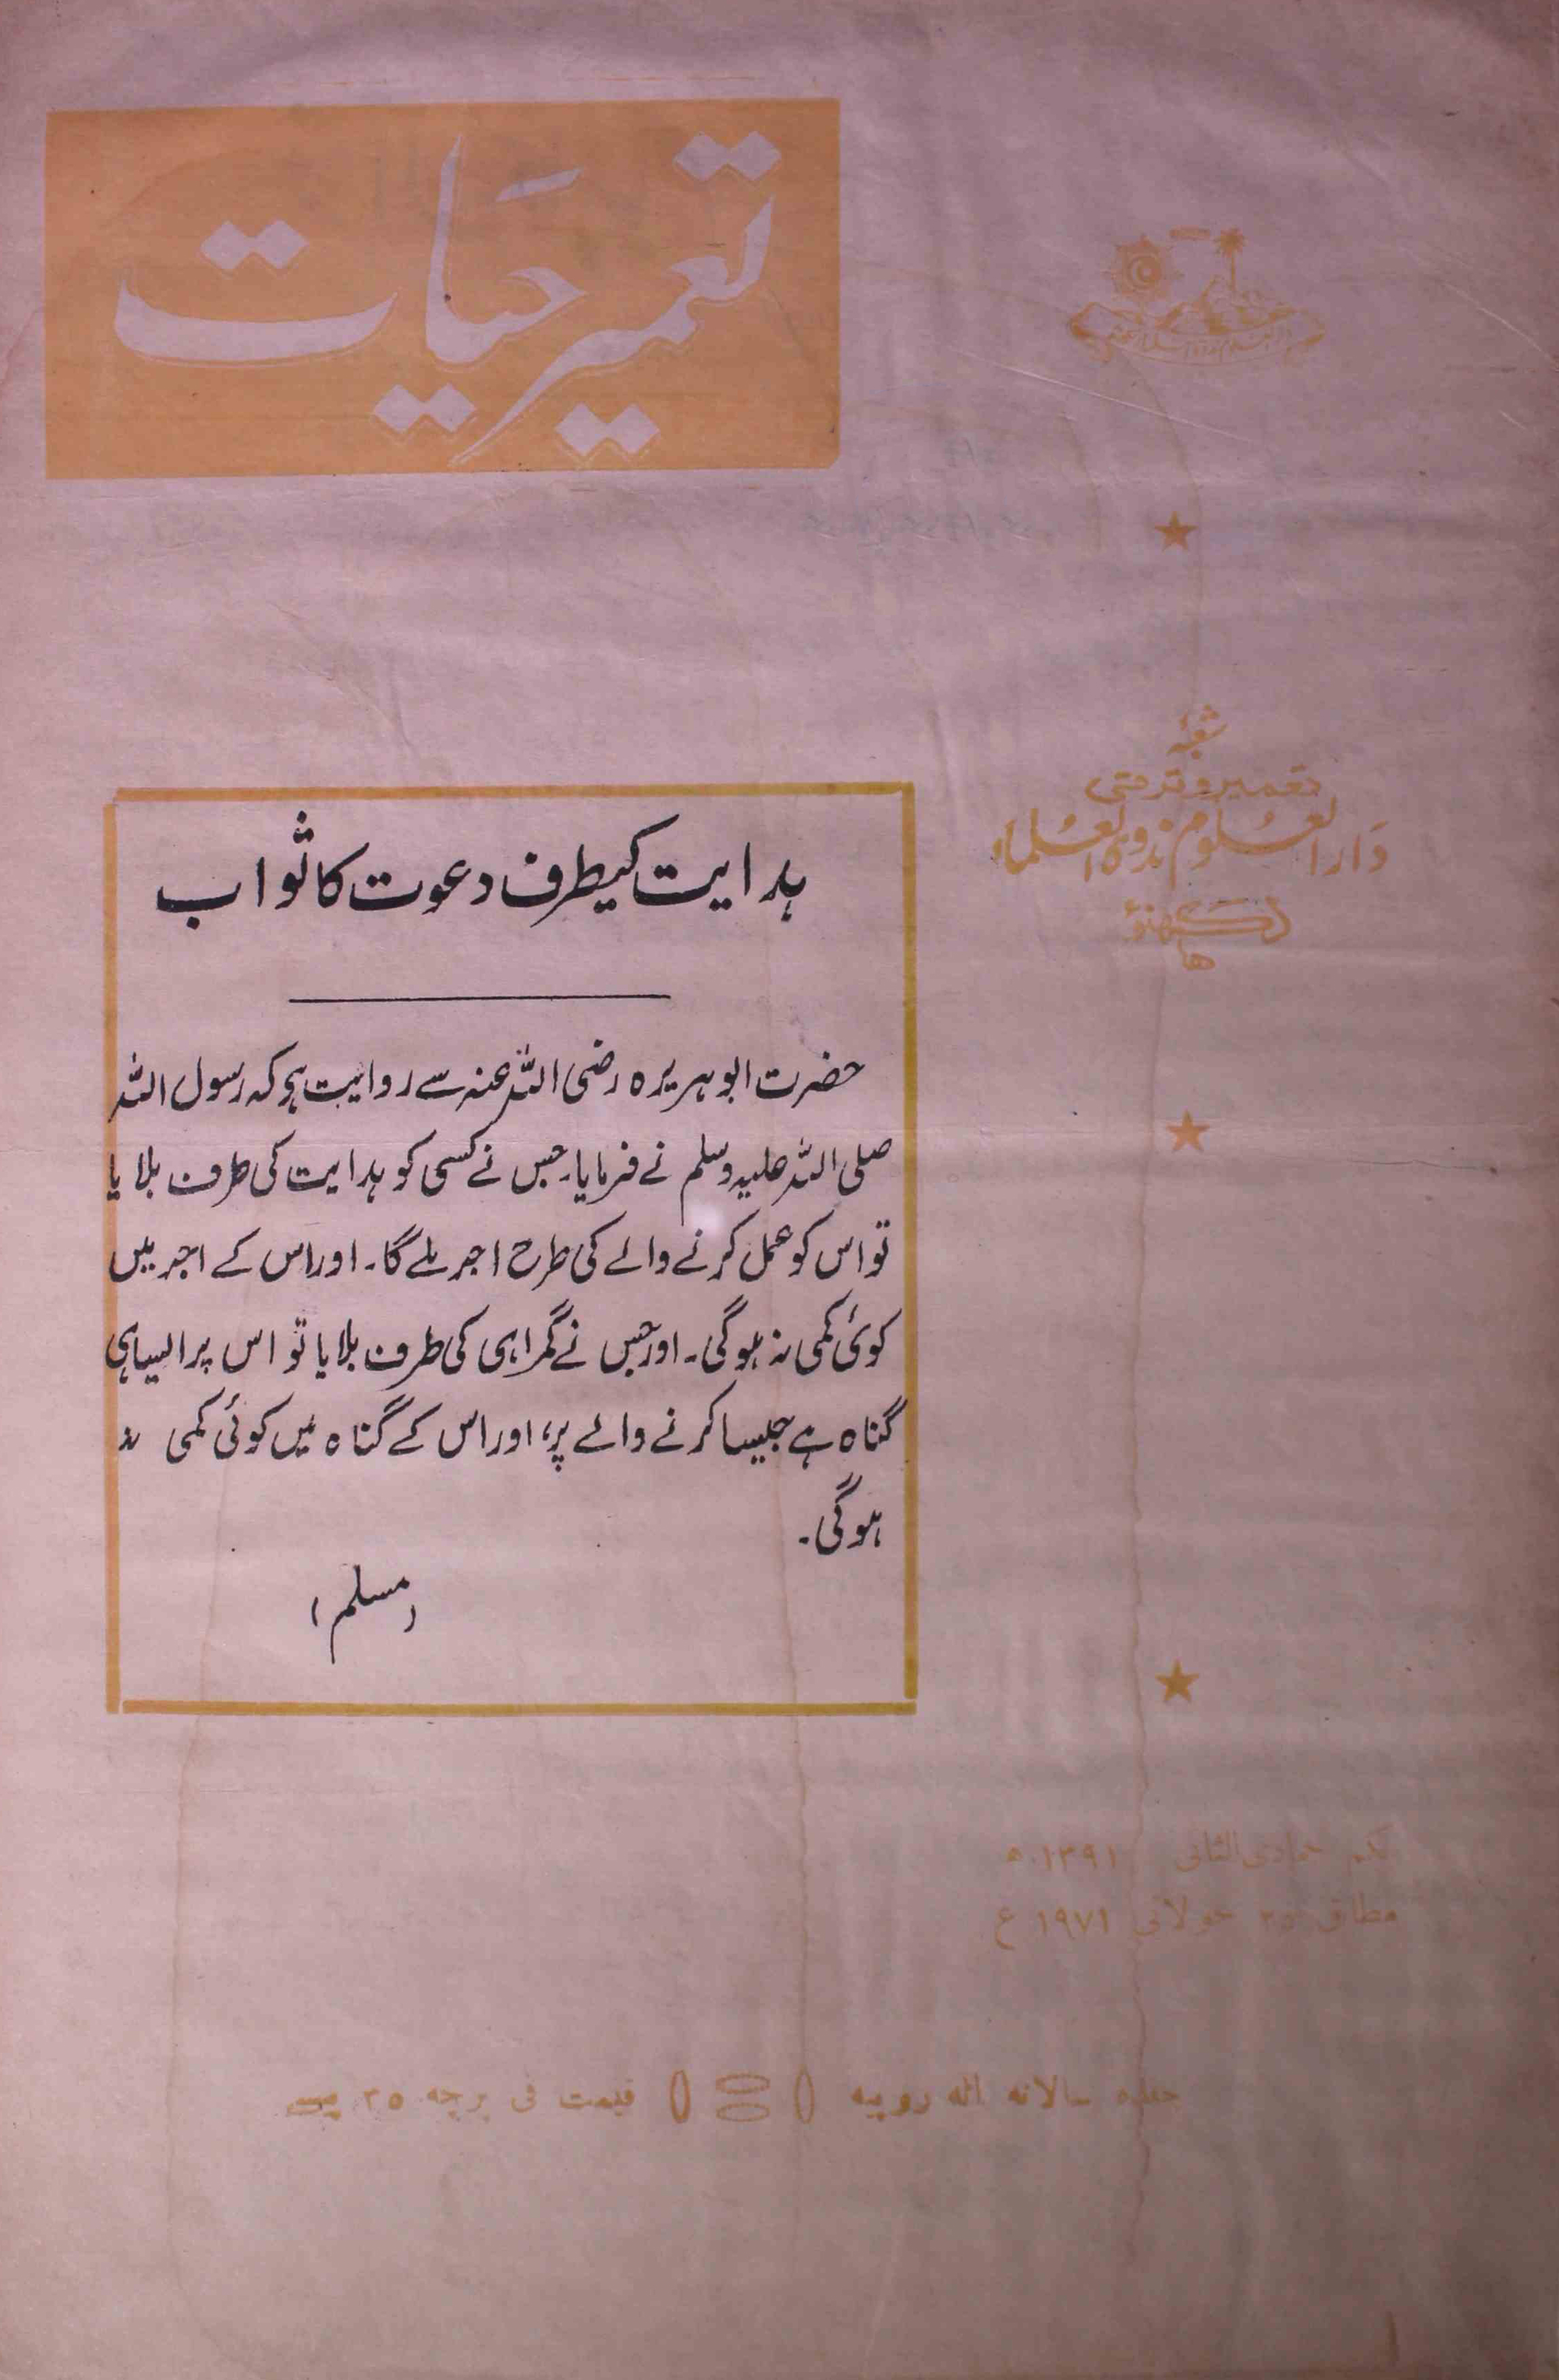 تعمیر حیات
شعبۂ
تعمیر و ترقی
دَارالعُلوم ندوۃ العُلماء
لکھنؤ
ہدایت کیطرف دعوت کا ثواب
حضرت ابو ہریرہ رضی اللہ عنہ سے روایت ہو کہ رسول اللہ
صلی اللہ علیہ وسلم نے فرمایا۔ جس نے کسی کو ہدایت کی طرف بلایا
تو اس کو عمل کرنے والے کی طرح اجر ملے گا۔ اور اس کے اجر میں
کوئی کمی نہ ہوگی۔ اور جس نے گمراہی کی طرف بلایا تو اس پر ایسا ہی
گناہ ہے جیسا کرنے والے پر، اور اس کے گناہ میں کوئی کمی نہ
ہوگی۔
(مسلم)
یکم جمادی الثانی ۱۳۹۱ ہ
مطابق ۲۵ جولائی ۱۹۷۱ ع
سالانہ اٹھ روپیہ
قیمت فی پرچہ ۲۵ پیسے